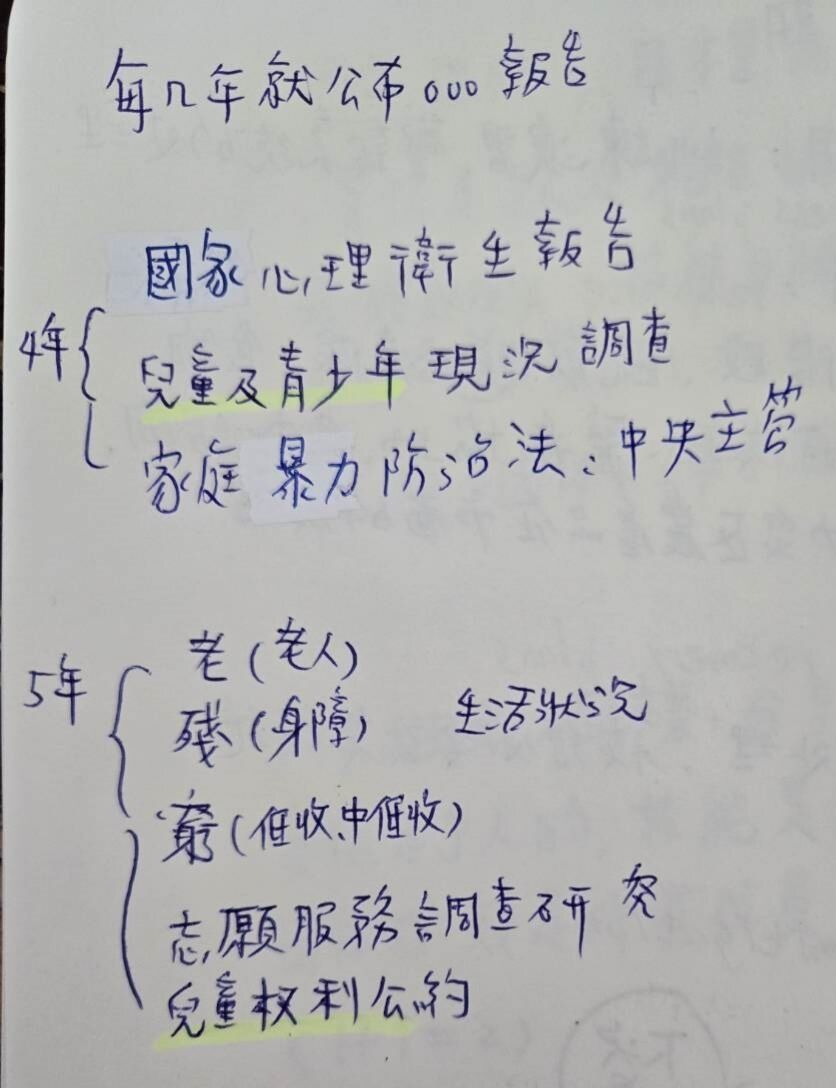 每几年就公布ooo報告
國家心理衛生報告
4年
兒童及青少年現況調查
家庭暴力防治法:中央主管
5年
老(老人)
殘(身障)
生活狀況
窮(低收、中低收)
志願服務調查研究
兒童权利公約